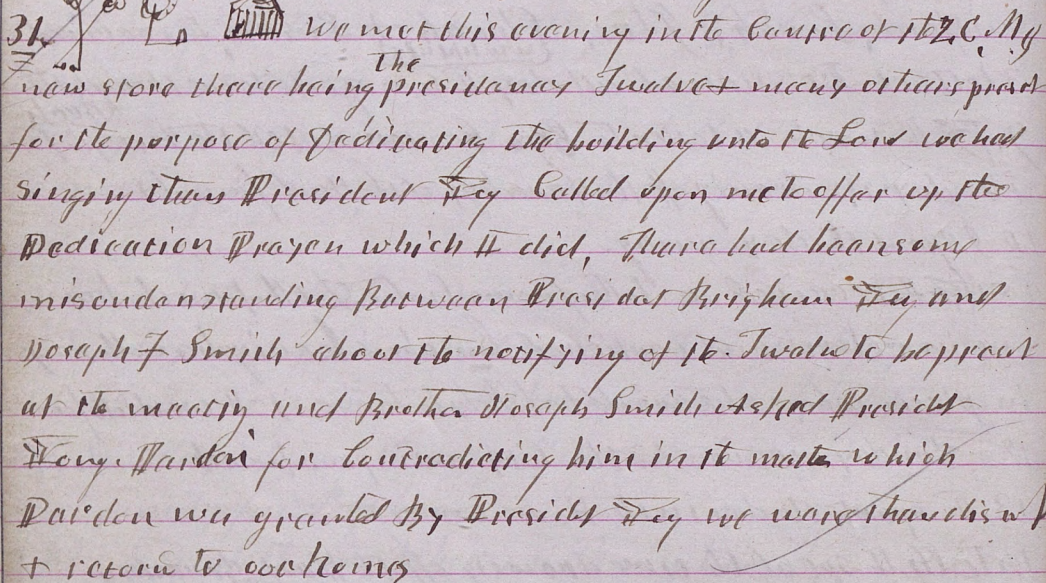 31 we met this evening in the Centre of the Z C M I
new store there being the presidency Twelve + many others present
for the purpose of Dedicating the building unto the Lord we had
singing then President Young Called upon me to offer up the
Dedication Prayer which I did, There had been some
misunderstanding Between Presidet Brigham Young and
Joseph F Smith about the notifying of the Twelve to be present
at the meeting and Brother Joseph Smith Asked Presidet
Young. Pardon for Contradicting him in the matter which
Pardon was granted By Presidet Young we were then
+ return to our homes